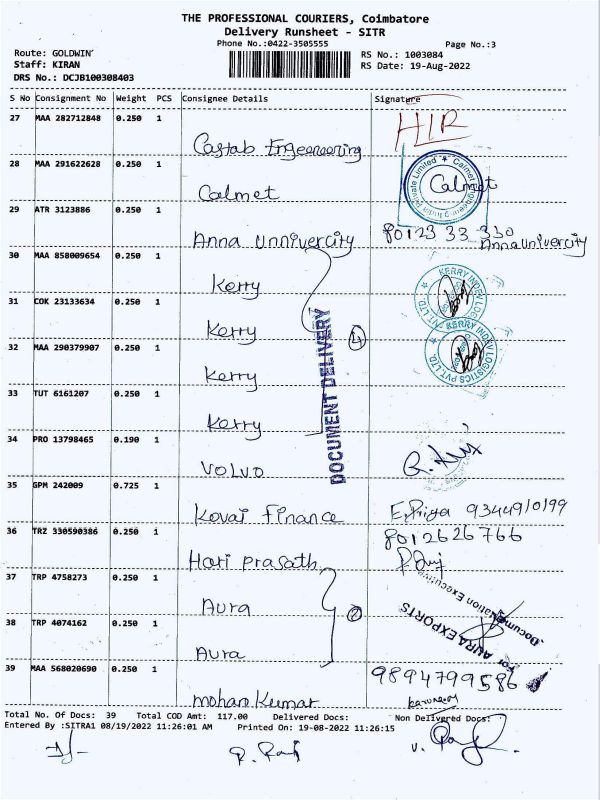 THE PROFESSIONAL COURIERS, Coimbatore
Delivery Runsheet - SITR
Phone No.:0422-3505555
Page No.:3
Route: GOLDWIN'
Staff: KIRAN
DRS No.: DCJB100308403
RS No.: 1003084
RS Date: 19-Aug-2022
S No Consignment No Weight PCS Consignee Details Signature
27 MAA 282712848 0.250 1
Castab Engeeneering
28 MAA 291622628 0.250 1
Calmet Calmet
29 ATR 3123886 0.250 1
Anna Unnivercity 80123 33 330
Anna Univercity
30 MAA 858009654 0.250 1
Kerry
KERRY INDEV LOGISTICS PVT. LTD.
31 COK 23133634 0.250 1
Kerry
KERRY INDEV LOGISTICS PVT. LTD.
4
DOCUMENT DELIVERY
32 MAA 290379907 0.250 1
Kerry
33 TUT 6161207 0.250 1
Kerry
34 PRO 13798465 0.190 1
Volvo
35 GPM 242009 0.725 1
Kovai Finance E.Priya 9344910199
36 TRZ 330590386 0.250 1 8012626766
Hari Prasath
37 TRP 4758273 0.250 1
Aura
2
For AURA EXPORTS
Documentation Executive
38 TRP 4074162 0.250 1
Aura
39 MAA 568020690 0.250 1 9894799586
mohan Kumar
Total No. Of Docs: 39 Total COD Amt: 117.00 Delivered Docs: Non Delivered Docs:
Entered By :SITRA1 08/19/2022 11:26:01 AM Printed On: 19-08-2022 11:26:15